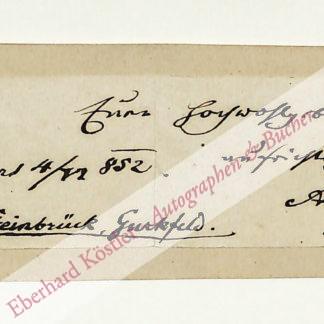 Euer Hochwohlg
4/VI 852. aufricht
Steinbrück, Gurkfeld. A
Eberhard Köstler Autographen & Bücher